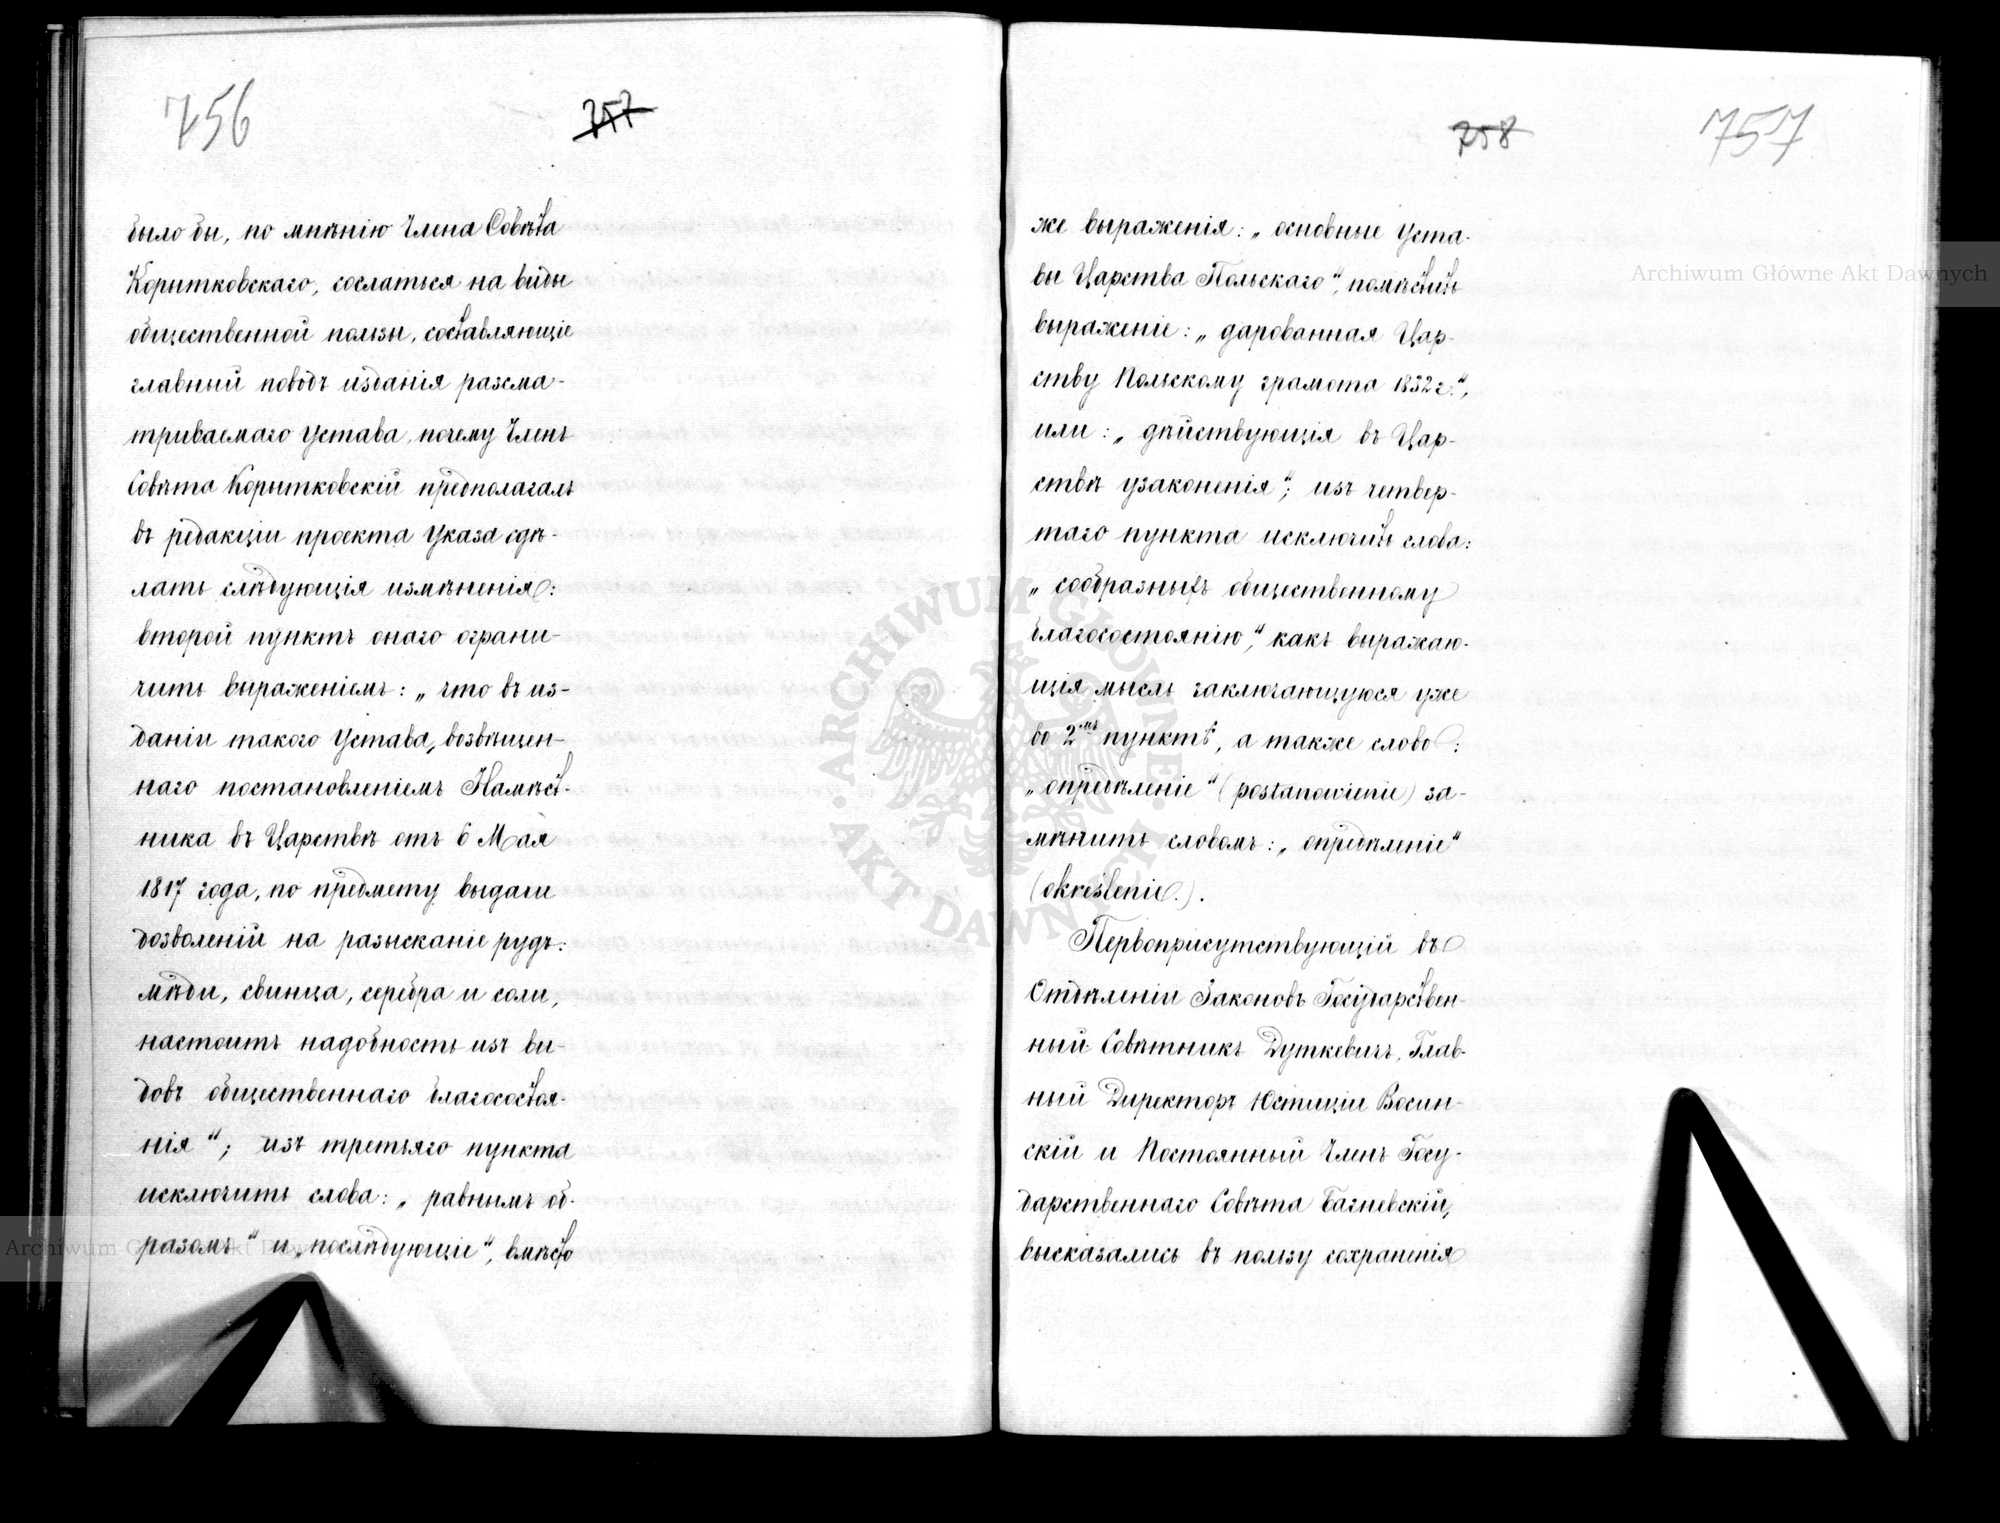 756
757
было бы, по мнѣнію Члена Совѣта
Корытковскаго, сослаться на виды
общественной пользы, составляющіе
главный поводъ изданія разсма-
триваемаго Устава, почему Членъ
Совѣта Корытковскій предполагалъ
въ редакціи проекта Указа сдѣ-
лать слѣдующія измѣненія:
второй пунктъ онаго ограни-
чить выраженіемъ: „что въ из-
даніи такого Устава, возвѣщен-
наго постановленіемъ Намѣст-
ника въ Царствѣ отъ 6 Мая
1817 года, по предмету выдачи
дозволеній на разысканіе рудъ:
мѣди, свинца, серебра и соли,
настоитъ надобность изъ ви-
довъ общественнаго благосостоя-
нія“; изъ третьяго пункта
исключить слова: „равнымъ об-
разомъ“ и „послѣдующіе“, вмѣсто
758
757
же выраженія: „основные Уста-
вы Царства Польскаго“, помѣстить
выраженіе: „дарованная Цар-
ству Польскому грамота 1832 г.“,
или: „дѣйствующія въ Цар-
ствѣ узаконенія“; изъ четвер-
таго пункта исключить слова:
„сообразныхъ общественному
благосостоянію“, какъ выражаю-
щія мысль заключающуюся уже
во 2мъ пунктѣ, а также слово:
„опредѣленіе“ (postanowienie) за-
мѣнить словомъ: „опредѣленіе“
(określenie.).
Первоприсутствующій въ
Отдѣленіи Законовъ Государствен-
ный Совѣтникъ Дуткевичъ, Глав-
ный Директоръ Юстиціи Восин-
скій и Постоянный Членъ Госу-
дарственнаго Совѣта Багневскій,
высказались въ пользу сохраненія
Archiwum Główne Akt Dawnych
Archiwum Główne Akt Dawnych
ARCHIWUM GŁÓWNE
AKT DAWNYCH